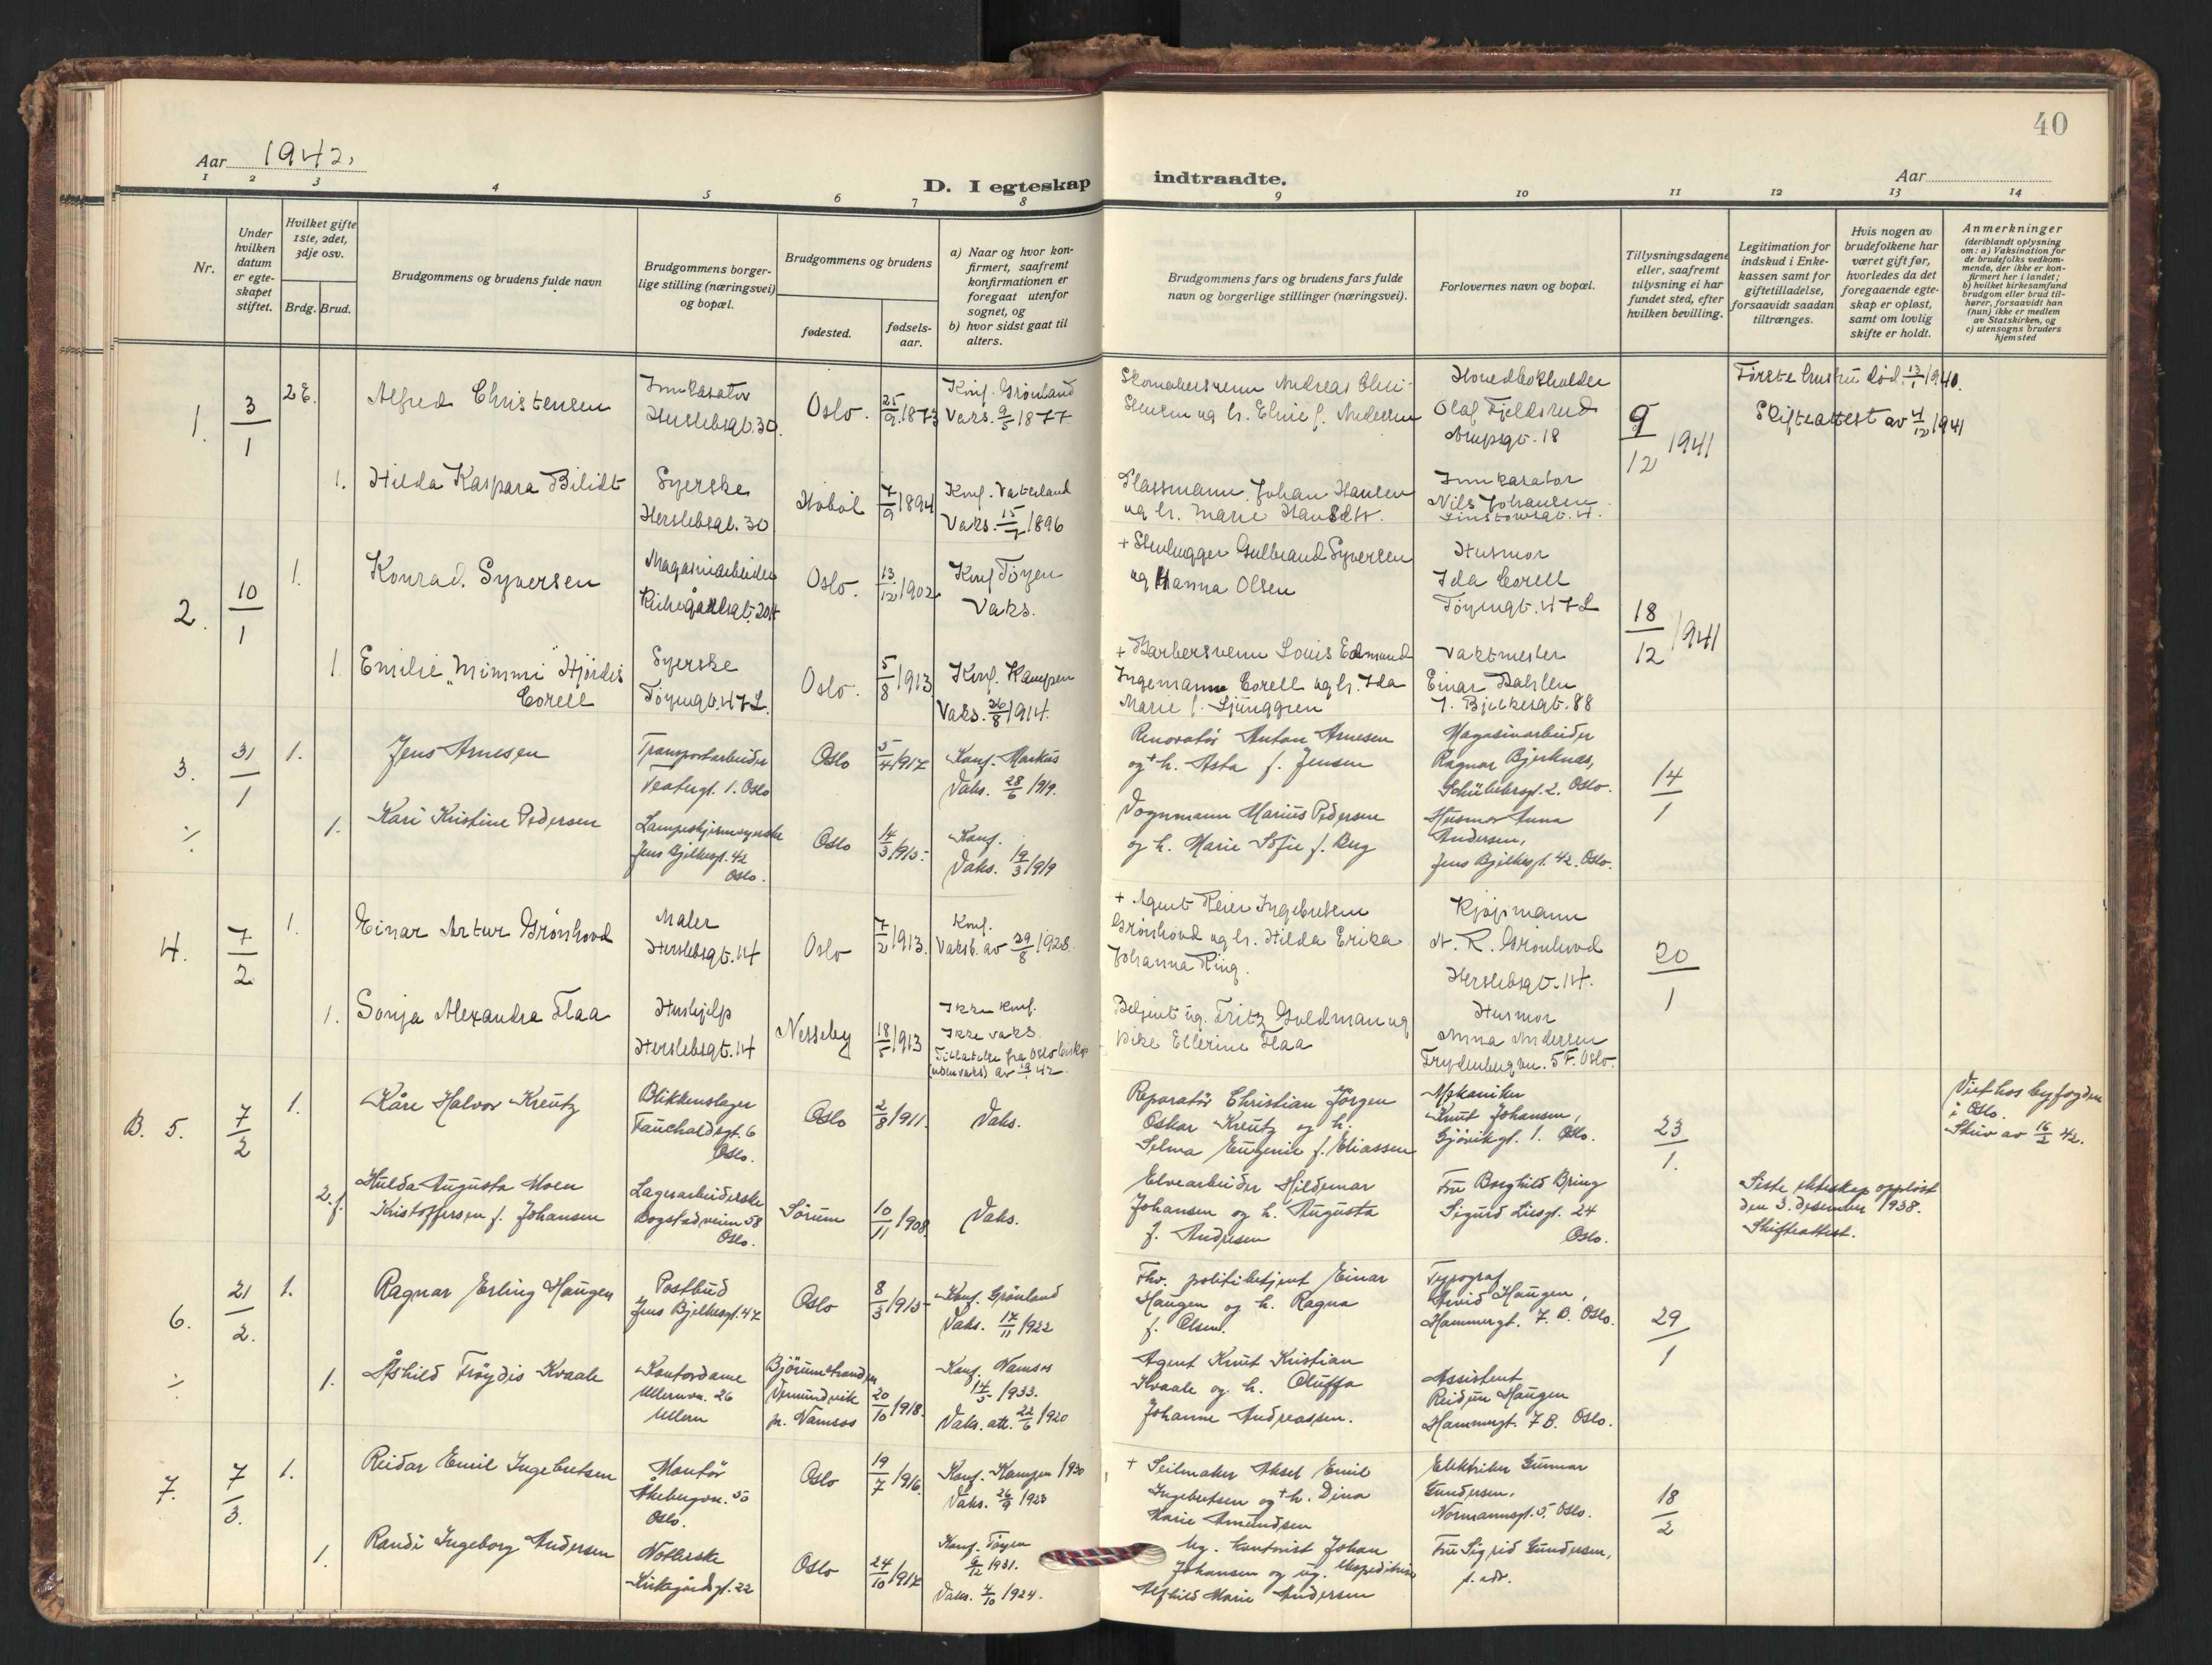 40
Aar 1942.
D. I egteskap indtraadte.
Aar
1 2 3 4 5 6 7 8 9 10 11 12 13 14
Nr.
Under hvilken datum er egteskapet stiftet.
Hvilket gifte 1ste, 2det, 3dje osv.
Brdg. Brud.
Brudgommens og brudens fulde navn
Brudgommens borgerlige stilling (næringsvei) og bopæl.
Brudgommens og brudens
fødested. fødselsaar.
a) Naar og hvor konfirmert, saafremt konfirmationen er foregaat utenfor sognet, og
b) hvor sidst gaat til alters.
Brudgommens fars og brudens fars fulde navn og borgerlige stillinger (næringsvei).
Forlovernes navn og bopæl.
Tillysningsdagene eller, saafremt tillysning ei har fundet sted, efter hvilken bevilling.
Legitimation for indskud i Enkekassen samt for giftetilladelse, forsaavidt saadan tiltrænges.
Hvis nogen av brudefolkene har været gift før, hvorledes da det foregaaende egteskap er opløst, samt om lovlig skifte er holdt.
Anmerkninger (deriblandt oplysning om: a) Vaksination for de brudefolks vedkommende, der ikke er konfirmert her i landet; b) hvilket kirkesamfund brudgom eller brud tilhører, forsaavidt han (hun) ikke er medlem av Statskirken, og c) utensogns bruders hjemsted
1. 3/1 2E. Alfred Christensen
Innkasator
Herslebsgt. 30.
Oslo. 25/9 1873
Konf. Grønland
Vaks. 9/5 1877.
Skomakersvenn Andreas Christensen og h. Eline f. Andersen
Hovedbokholder
Olaf Fjeldsrud
Arupsgt. 18
9/12 1941
Første hustru død 13/1 1940.
Skifteattest av 4/12 1941
1. Hilda Kaspara Bilidt
Syerske
Herslebsgt. 30
Hobøl 7/9 1894
Konf. Vaterland
Vaks. 15/7 1896
Plassmann Johan Hansen
og h. Marie
Innkasator
Nils Johansen
Linstowsgt. 4.
2. 10/1 1. Konrad Syversen
Magasinarbeider
Kirkegårdsgt. 20
Oslo. 13/12 1902
Konf Tøyen
Vaks.
+ Stenhugger Gulbrand Syversen
og Hanna Olsen
Husmor
Ida Corell
Tøyengt. 47 L
18/12 1941
1. Emilie "Mimmi" Hjördis
Corell
Syerske
Tøyengt. 47 L.
Oslo. 5/8 1913
Konf. Kampen
Vaks. 26/8 1914.
+ Barbersvenn Louis Edmund
Ingemann Corell og h. Ida
Marie f. Ljunggren
Vaktmester
Einar Dahlen
J. Bjelkesgt. 88
3. 31/1 1. Jens Arnesen
Transportarbeider
Oslo
Oslo 5/4 1917
Konf. Markus
Vaks. 28/6 1919.
Renovatør Anton Arnesen
og + h. Asta f. Jensen
Magasinarbeider
Ragnar Bjerknes,
Schübelersgt. 2. Oslo.
14/1
1. Kari Kristine Pedersen
Lampeskjermsyerske
Jens Bjelkesgt. 42
Oslo.
Oslo 14/3 1915.
Konf.
Vaks. 19/3 1919
Vognmann Marius Pedersen
og h. Marie Sofie f. Berg
Husmor Anna
Andersen,
Jens Bjelkesgt. 42. Oslo.
4. 7/2 1. Einar Artur Grønhovd
Maler
Herslebsgt. 14
Oslo 7/2 1913.
Konf.
Vaksb. av 29/8 1928.
+ Agent Reier Ingebretsen
Grønhovd og h. Hilda Erika
Johanna Ring.
Kjøpmann
N. R. Grønhovd
Herslebsgt. 14.
20/1
1. Sonja Alexandra Flaa
Hushjelp
Herslebsgt. 14
Nesseby 18/5 1913
Ikke konf.
Ikke vaks.
Tillatelse fra Oslo biskop
Betjent ug. Fritz Goldman og
pike Ellerine Flaa
Husmor
Anna Andersen
Frydenbergvn. 5 F. Oslo.
B. 5. 7/2 1. Kåre Halvor Kreutz
Blikkenslager
Fauchaldsgt. 6
Oslo.
Oslo 2/8 1911.
Vaks.
Reparatør Christian Jörgen
Oskar Kreutz og h.
Selma Eugenie f. Eliassen
Mekaniker
Knut Johansen,
Gjøvikgt. 1. Oslo.
23/1.
Viet hos byfogden
i Oslo.
Skriv av 16/2 42.
2. f. Hulda Augusta Moen
Kristoffersen f. Johansen
Lagerarbeiderske
Bogstadveien 58
Oslo.
Sörum 10/11 1908.
Vaks.
Elvearbeider Hildemar
Johansen og h. Augusta
f. Andresen
Fru Borghild Bring
Sigurd Liesgt. 24
Oslo.
Siste ekteskap oppløst
den 3. desember 1938.
Skifteattest.
6. 21/2. 1. Ragnar Erling Haugen
Postbud
Jens Bjelkesgt. 47
Oslo 8/3 1915
Konf. Grønland
Vaks. 17/11 1922
Fhv. politibetjent Einar
Haugen og h. Ragna
f. Olsen.
Typograf
Arvid Haugen,
Hammergt. 7. B. Oslo.
29/1
1. Åshild Frøydis Kvaale
Kontordame
Ullernvn. 26
Ullern
Bjørumstranden
Vemundvik
pr. Namsos
20/10 1918.
Konf. Namsos
14/5 1933.
Vaks. att. 22/6 1920
Agent Knut Kristian
Kvaale og h. Oluffa
Johanne Andreassen.
Assistent
Reidun Haugen
Hammergt. 7 B. Oslo.
7. 7/3. 1. Reidar Emil Ingebretsen
Montør
Åkebergvn. 50
Oslo.
Oslo 19/7 1916.
Konf. Kampen 1930
Vaks. 26/9 1923
+ Seilmaker Aksel Emil
Ingebretsen og + h. Dina
Marie Amundsen
Elektriker Gunnar
Gundersen,
Normannsgt. 5. Oslo.
18/2
1. Randi Ingeborg Andersen
Kirkegårdsgt. 22
Oslo 24/10 1917
Konf. Tøyen
6/12 1931.
Vaks. 4/10 1924.
Ug. kontorist Johan
Johansen og ug. ekspeditrise
Alfhild Marie Andersen
Fru Sigrid Gundersen,
s. adr.